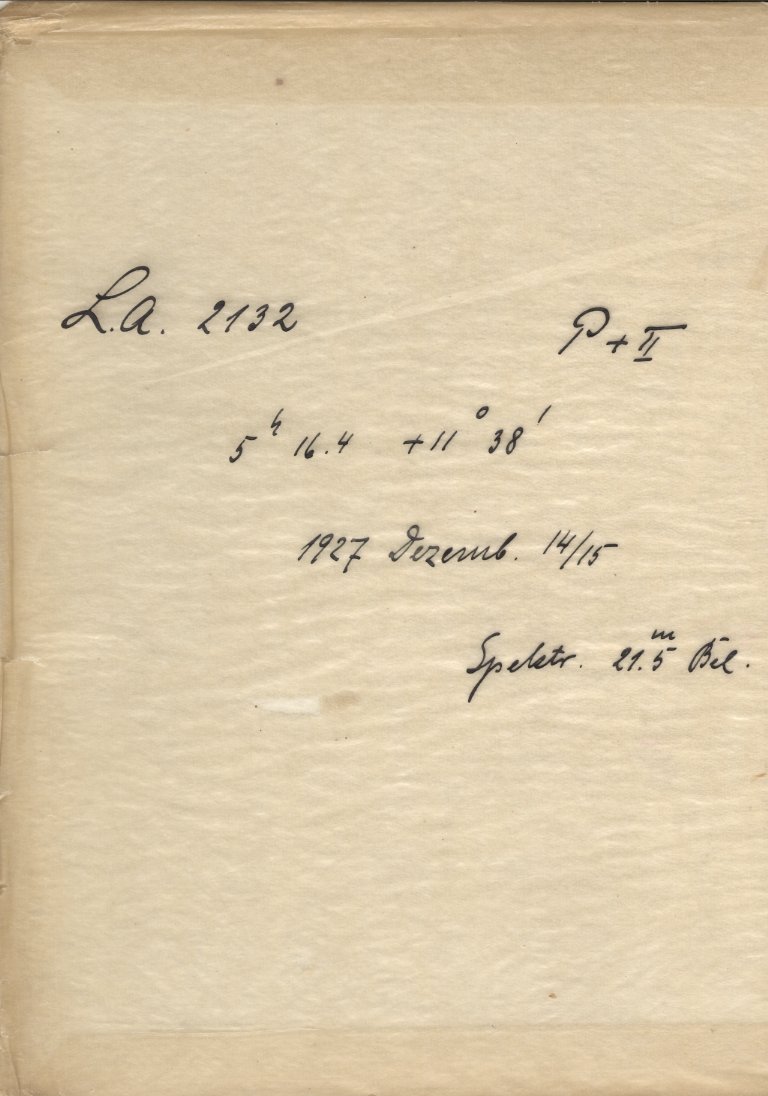 L.A. 2132 P+II
5ʰ 16.4 +11° 38'
1927 Dezemb. 14/15
Spektr. 21.5ᵐ Bel.